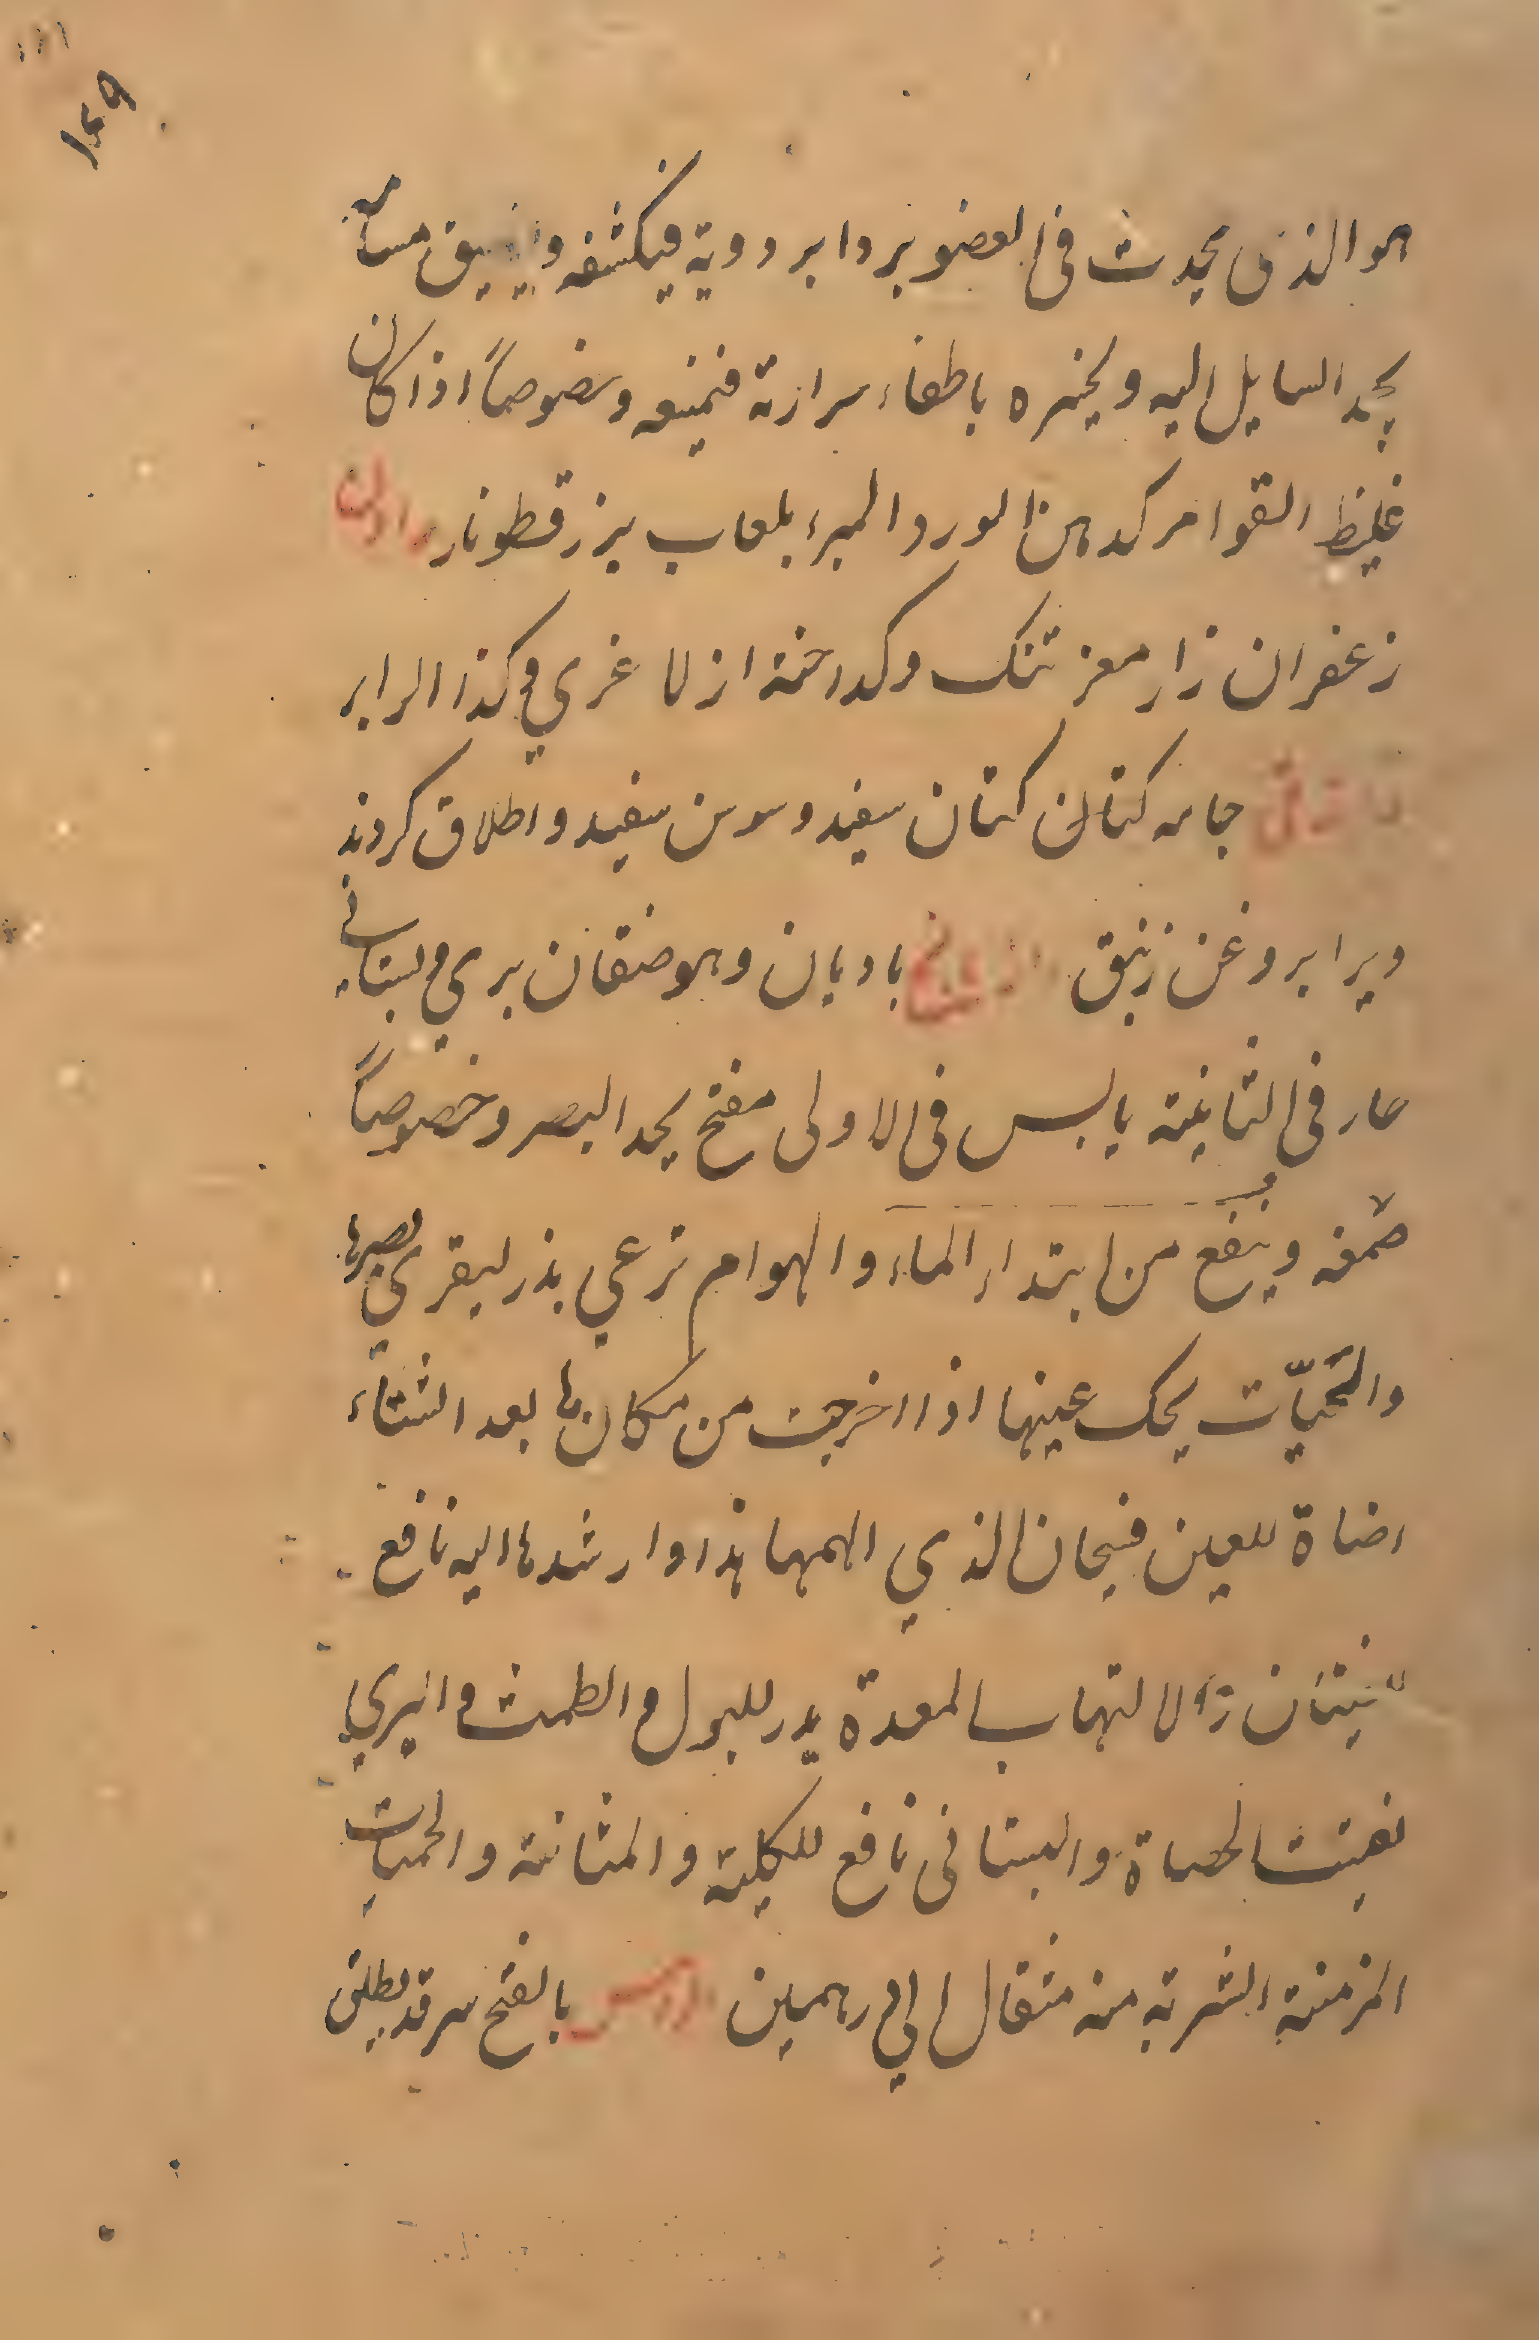 ١٤٩
هو الذی یحدث فی العضو بردا برودویة فیکشفه ویضیق مسامه
یجد السایل الیه ویخثره باطفاء سرارته فیمنعه وخصوصاً اذا کان
غلیظ القوام کدهن الورد المبرء بلعاب بزر قطونا
زعفران زار معز تنک وکداخته از لاغري وکذا الرابر
جامه کتان کتان سفید وسوسن سفید واطلاق کردند
ویرا بروغن زنبق بادیان وهو صنفان بري وبستانی
حار فی الثانیة یابس فی الاولی مفتح یحد البصر وخصوصاً
صمغه وینفع من ابتداء الماء والهوام ترعي بذر لیقري بصرها
والحیّات یحک عینها اذا اخرجت من مکانها بعد الشتاء
اضاة للعین فسبحان الذي الهمها هذا وارشدها الیه نافع
والالتهاب المعدة یدر للبول والطمث والبري
یفتت الحصاة والبستانی نافع للکلیة والمثانة والحمیات
المزمنة الشربة منه مثقال الی درهمین بالفتح سرقد یطلق